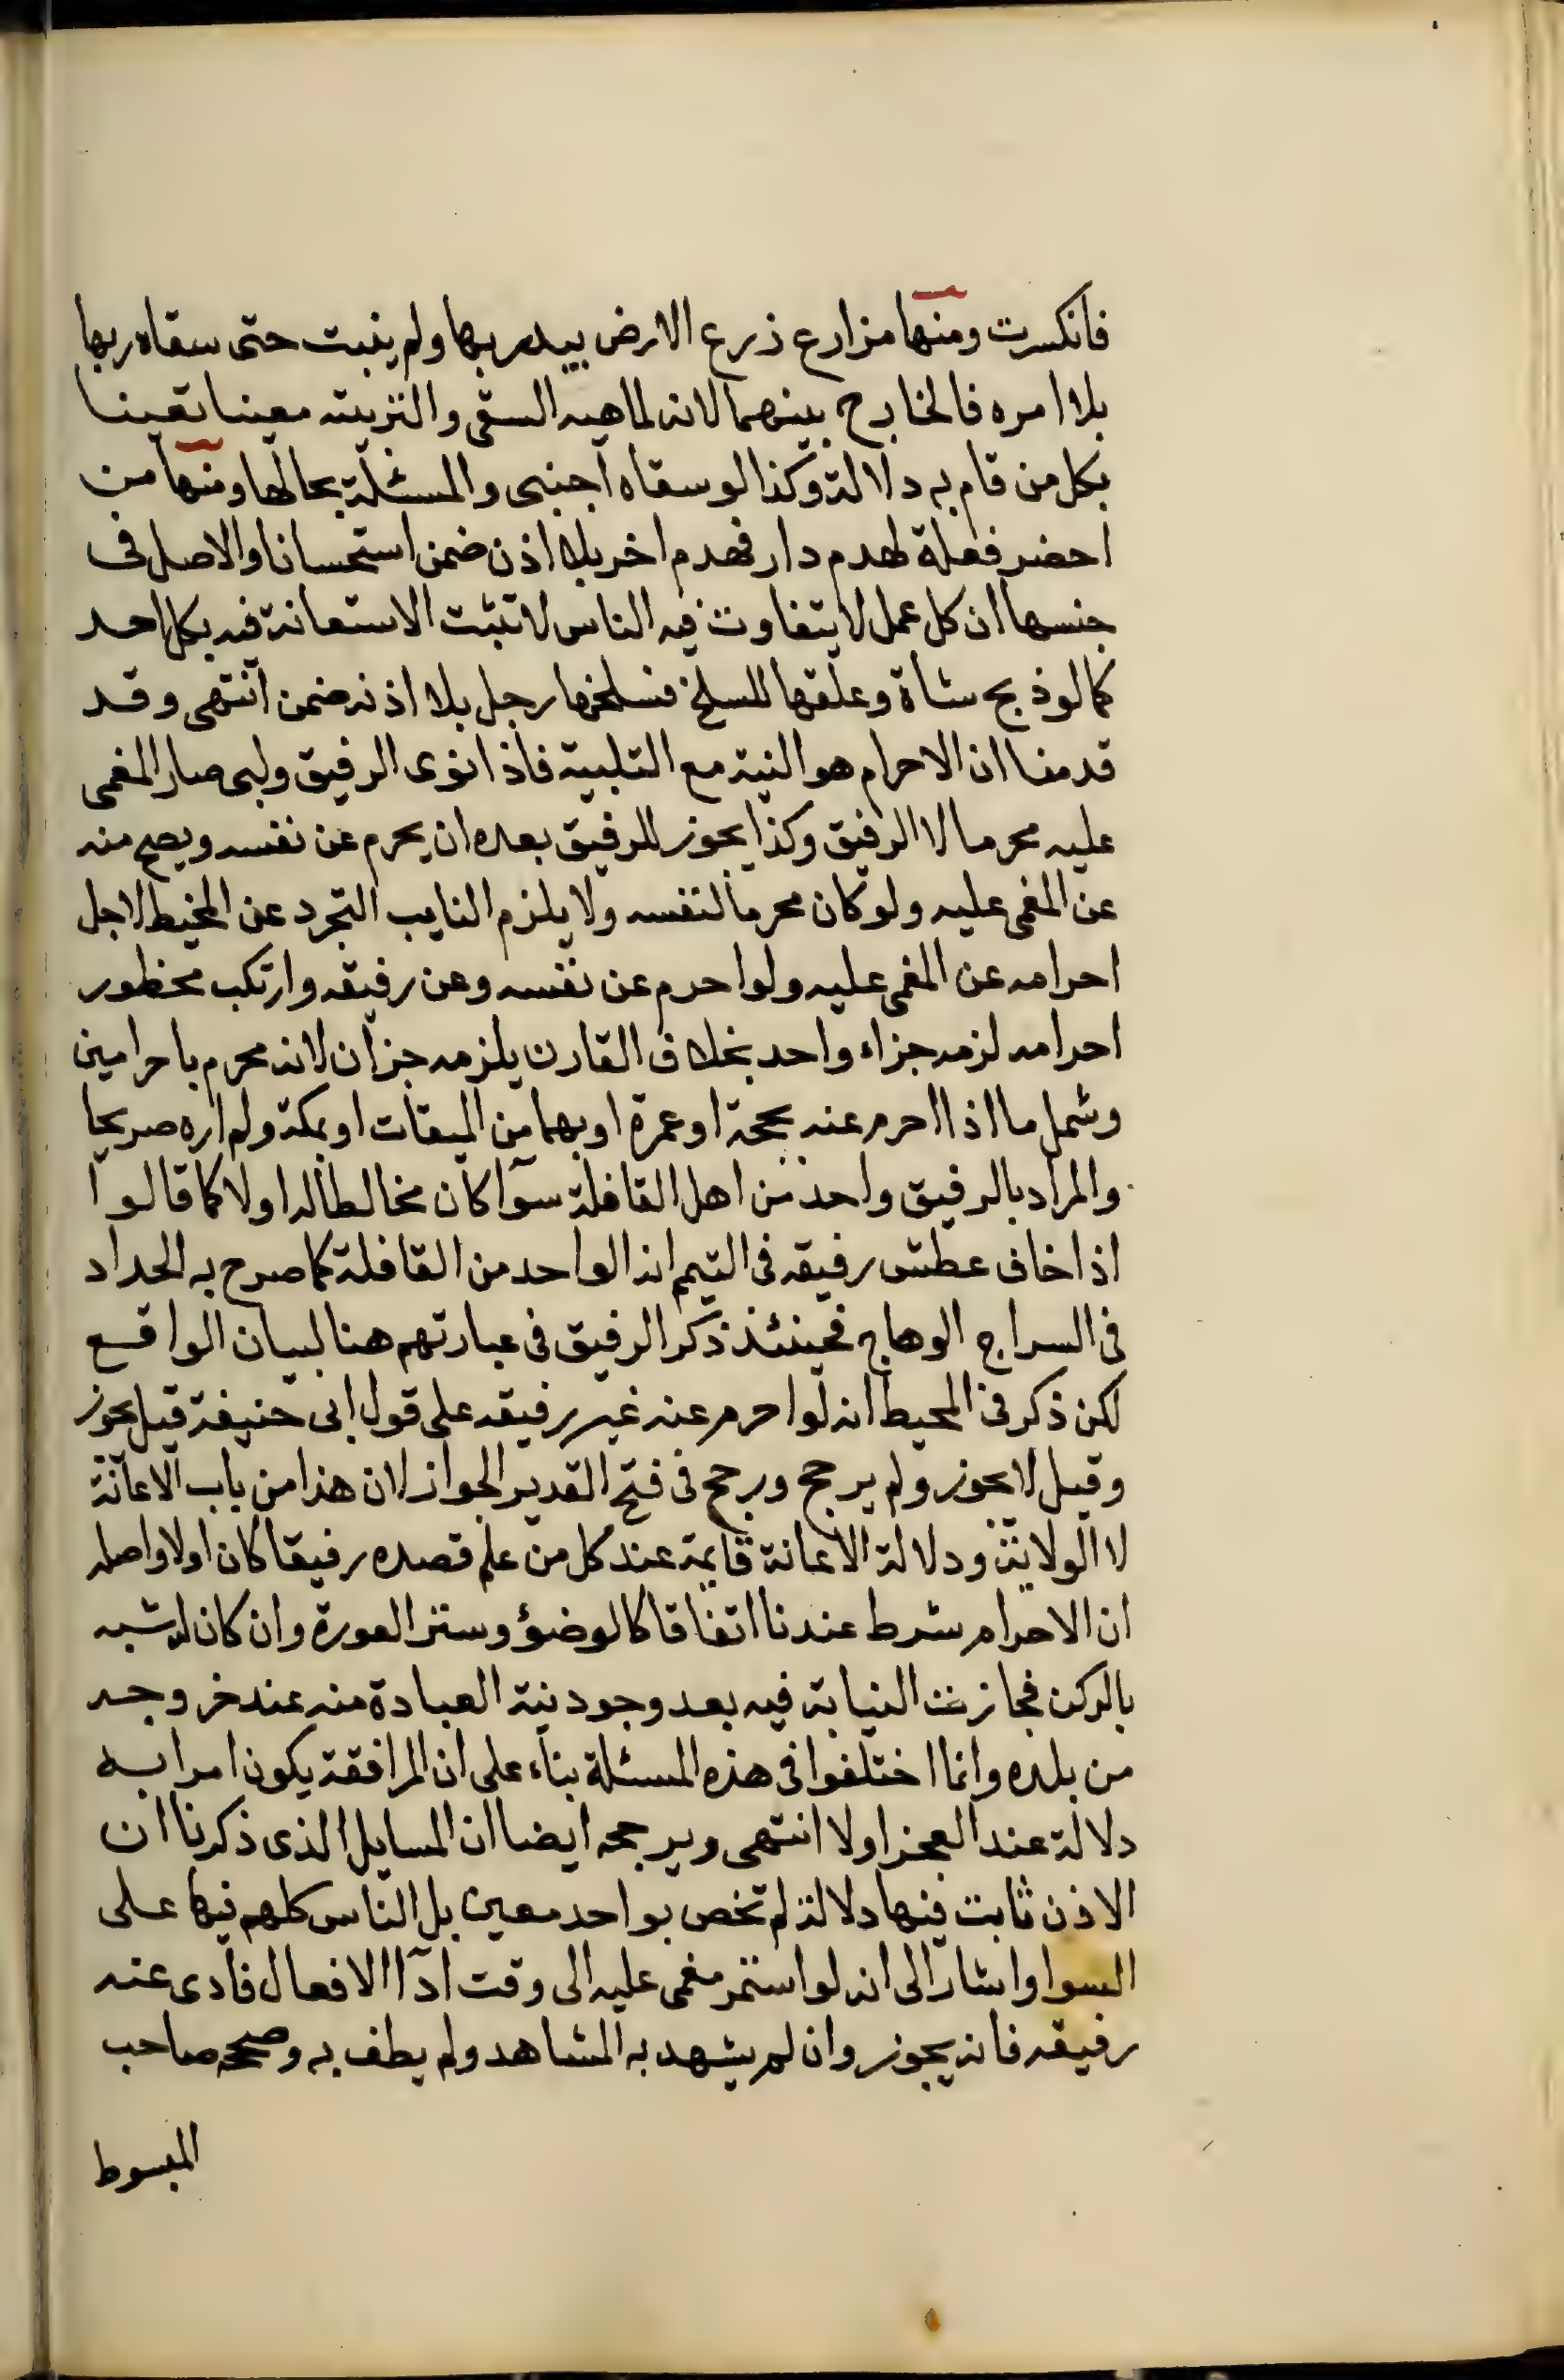 فانكسرت ومنها مزارع زرع الارض ببذر ربها ولم ينبت حتى سقاه ربها
بلا امره فالخارج بينهما لانه لما هيه السقى والتربيته معينا تعينا
بكل من قام به دلالة وكذا لو سقاه اجنبى والمسئلة بحالها ومنها من
احضر فعلة لهدم دار فهدم اخر بلا اذن ضمن استحسانا والاصل فى
جنسها ان كل عمل لا يتفاوت فيه الناس لا تثبت الاستعانة فيه بكل احد
كما لو ذبح شاة وعلقها للسلخ فسلخها رجل بلا اذنه ضمن انتهى وقد
قدمنا ان الاحرام هو النية مع التلبية فاذا نوى الرفيق ولبى صار المغمى
عليه محرما لا الرفيق وكذا يجوز للرفيق بعده ان يحرم عن نفسه ويصح منه
عن المغمى عليه ولو كان محرما لنفسه ولا يلزم النايب التجرد عن المخيط لاجل
احرامه عن المغمى عليه ولو احرم عن نفسه وعن رفيقه وارتكب محظور
احرامه لزمه جزاء واحد بخلاف القارن يلزمه جزان لانه محرم باحرامين
وشمل ما اذا احرم عنه بحجة او عمرة او بهما من الميقات او بمكة ولم اره صريحا
والمراد بالرفيق واحد من اهل القافلة سوآ كان مخالطا له اولا كما قالوا
اذا خاف عطش رفيقه فى التيمم انه الواحد من القافلة كما صرح به الحداد
فى السراج الوهاج فحينئذ ذكر الرفيق فى عبارتهم هنا لبيان الواقع
لكن ذكر فى المحيط انه لو احرم عنه غير رفيقه على قول ابى حنيفة قيل يجوز
وقيل لا يجوز ولم يرجح ورجح فى فتح القدير الجواز لان هذا من باب الاعانة
لا الولاية ودلالة الاعانة قايمة عند كل من علم قصده رفيقا كان اولا واصله
ان الاحرام شرط عندنا اتفاقا كالوضؤ وستر العورة وان كان له شبه
بالركن فجازت النيابة فيه بعد وجود نية العبادة منه عند خروجه
من بلده وانما اختلفوا فى هذه المسئلة بناء على ان المرافقة يكون امرا به
دلالة عند العجز اولا انتهى ويرجحه ايضا ان المسايل الذى ذكرنا ان
الاذن ثابت فيها دلالة لم تخص بواحد معين بل الناس كلهم فيها على
السوا واشار الى انه لو استمر مغمى عليه الى وقت ادآ الافعال فادى عنه
رفيقه فانه يجوز وان لم يشهد به المشاهد ولم يطف به وصححه صاحب
المبسوط